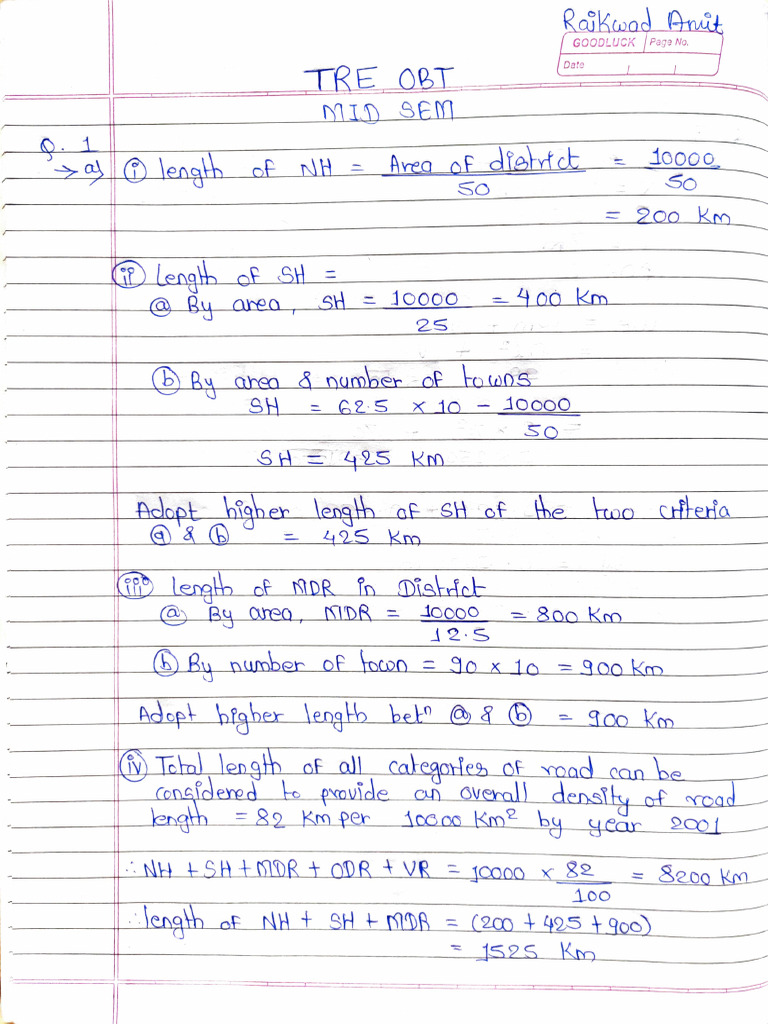 Raikwad Amit
GOODLUCK Page No.
Date
TRE OBT
MID SEM
Q. 1
→ a) (i) length of NH = Area of district / 50 = 10000 / 50
= 200 Km
(ii) Length of SH =
(a) By area, SH = 10000 / 25 = 400 Km
(b) By area & number of towns
SH = 62.5 × 10 - 10000 / 50
SH = 425 Km
Adopt higher length of SH of the two criteria
(a) & (b) = 425 Km
(iii) Length of MDR in District
(a) By area, MDR = 10000 / 12.5 = 800 Km
(b) By number of town = 90 × 10 = 900 Km
Adopt higher length betⁿ (a) & (b) = 900 Km
(iv) Total length of all categories of road can be
considered to provide an overall density of road
length = 82 Km per 10000 Km² by year 2001
∴ NH + SH + MDR + ODR + VR = 10000 × 82 / 100 = 8200 Km
∴ length of NH + SH + MDR = (200 + 425 + 900)
= 1525 Km